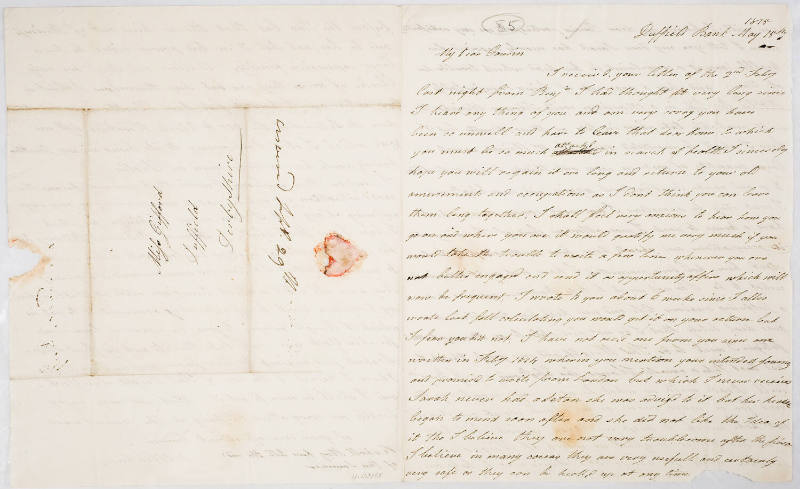 85
1815
Duffield Bank May 18th
My Dear Cousin
I receiv'd your letter of the 2nd Feby
last night from I had thought it very long since
I heard any thing of you and am very sorry you have
been so unwell and have to leave that dear home to which
you must be so much attached in search of health I sincerely
hope you will regain it ere long and return to your old
amusements and occupations as I don't think you can leave
them long together. I shall feel very anxious to hear how you
go on and where you are it would gratify me very much if you
would take the trouble to write a few lines whenever you are
not better engaged and and if an opportunity offers which will
now be frequent. I wrote to you about 6 weeks since I also
wrote last fall calculating you would get it on your return but
I fear you did not. I have not rec'd one from you since one
written in Feby 1814 wherein you mention your intended journey
and promised to write from London but which I never receiv'd
Sarah never had a she was advised to it but her health
began to mend soon after and she did not like the Idea of
it tho I believe they are not very troublesome after the first
I believe in many cases they are very usefull and certainly
very safe as they can be heal'd up at any time
Miss Gifford
Duffield
Derbyshire
answered Sept 29th